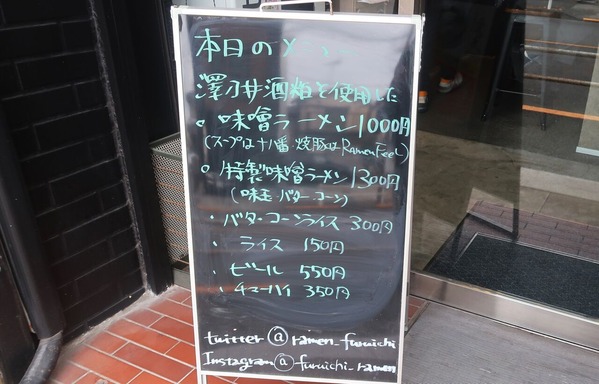 本日のメニュー
澤乃井酒粕を使用した
○ 味噌ラーメン 1000円
(スープは十八番 焼豚は RamenFeeL)
○ 特製味噌ラーメン 1300円
(味玉 バター コーン)
・ バターコーンライス 300円
・ ライス 150円
・ ビール 550円
・ チューハイ 350円
twitter @ ramen_furuichi
Instagram @ furuichi_ramen